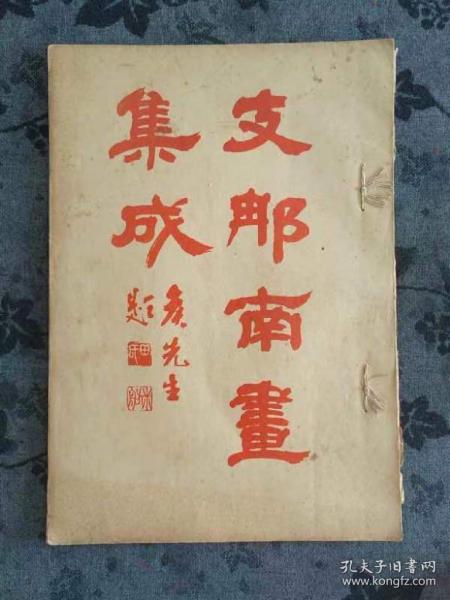 支那南畫
集成
先生
題
孔夫子旧书网
www.kongfz.com